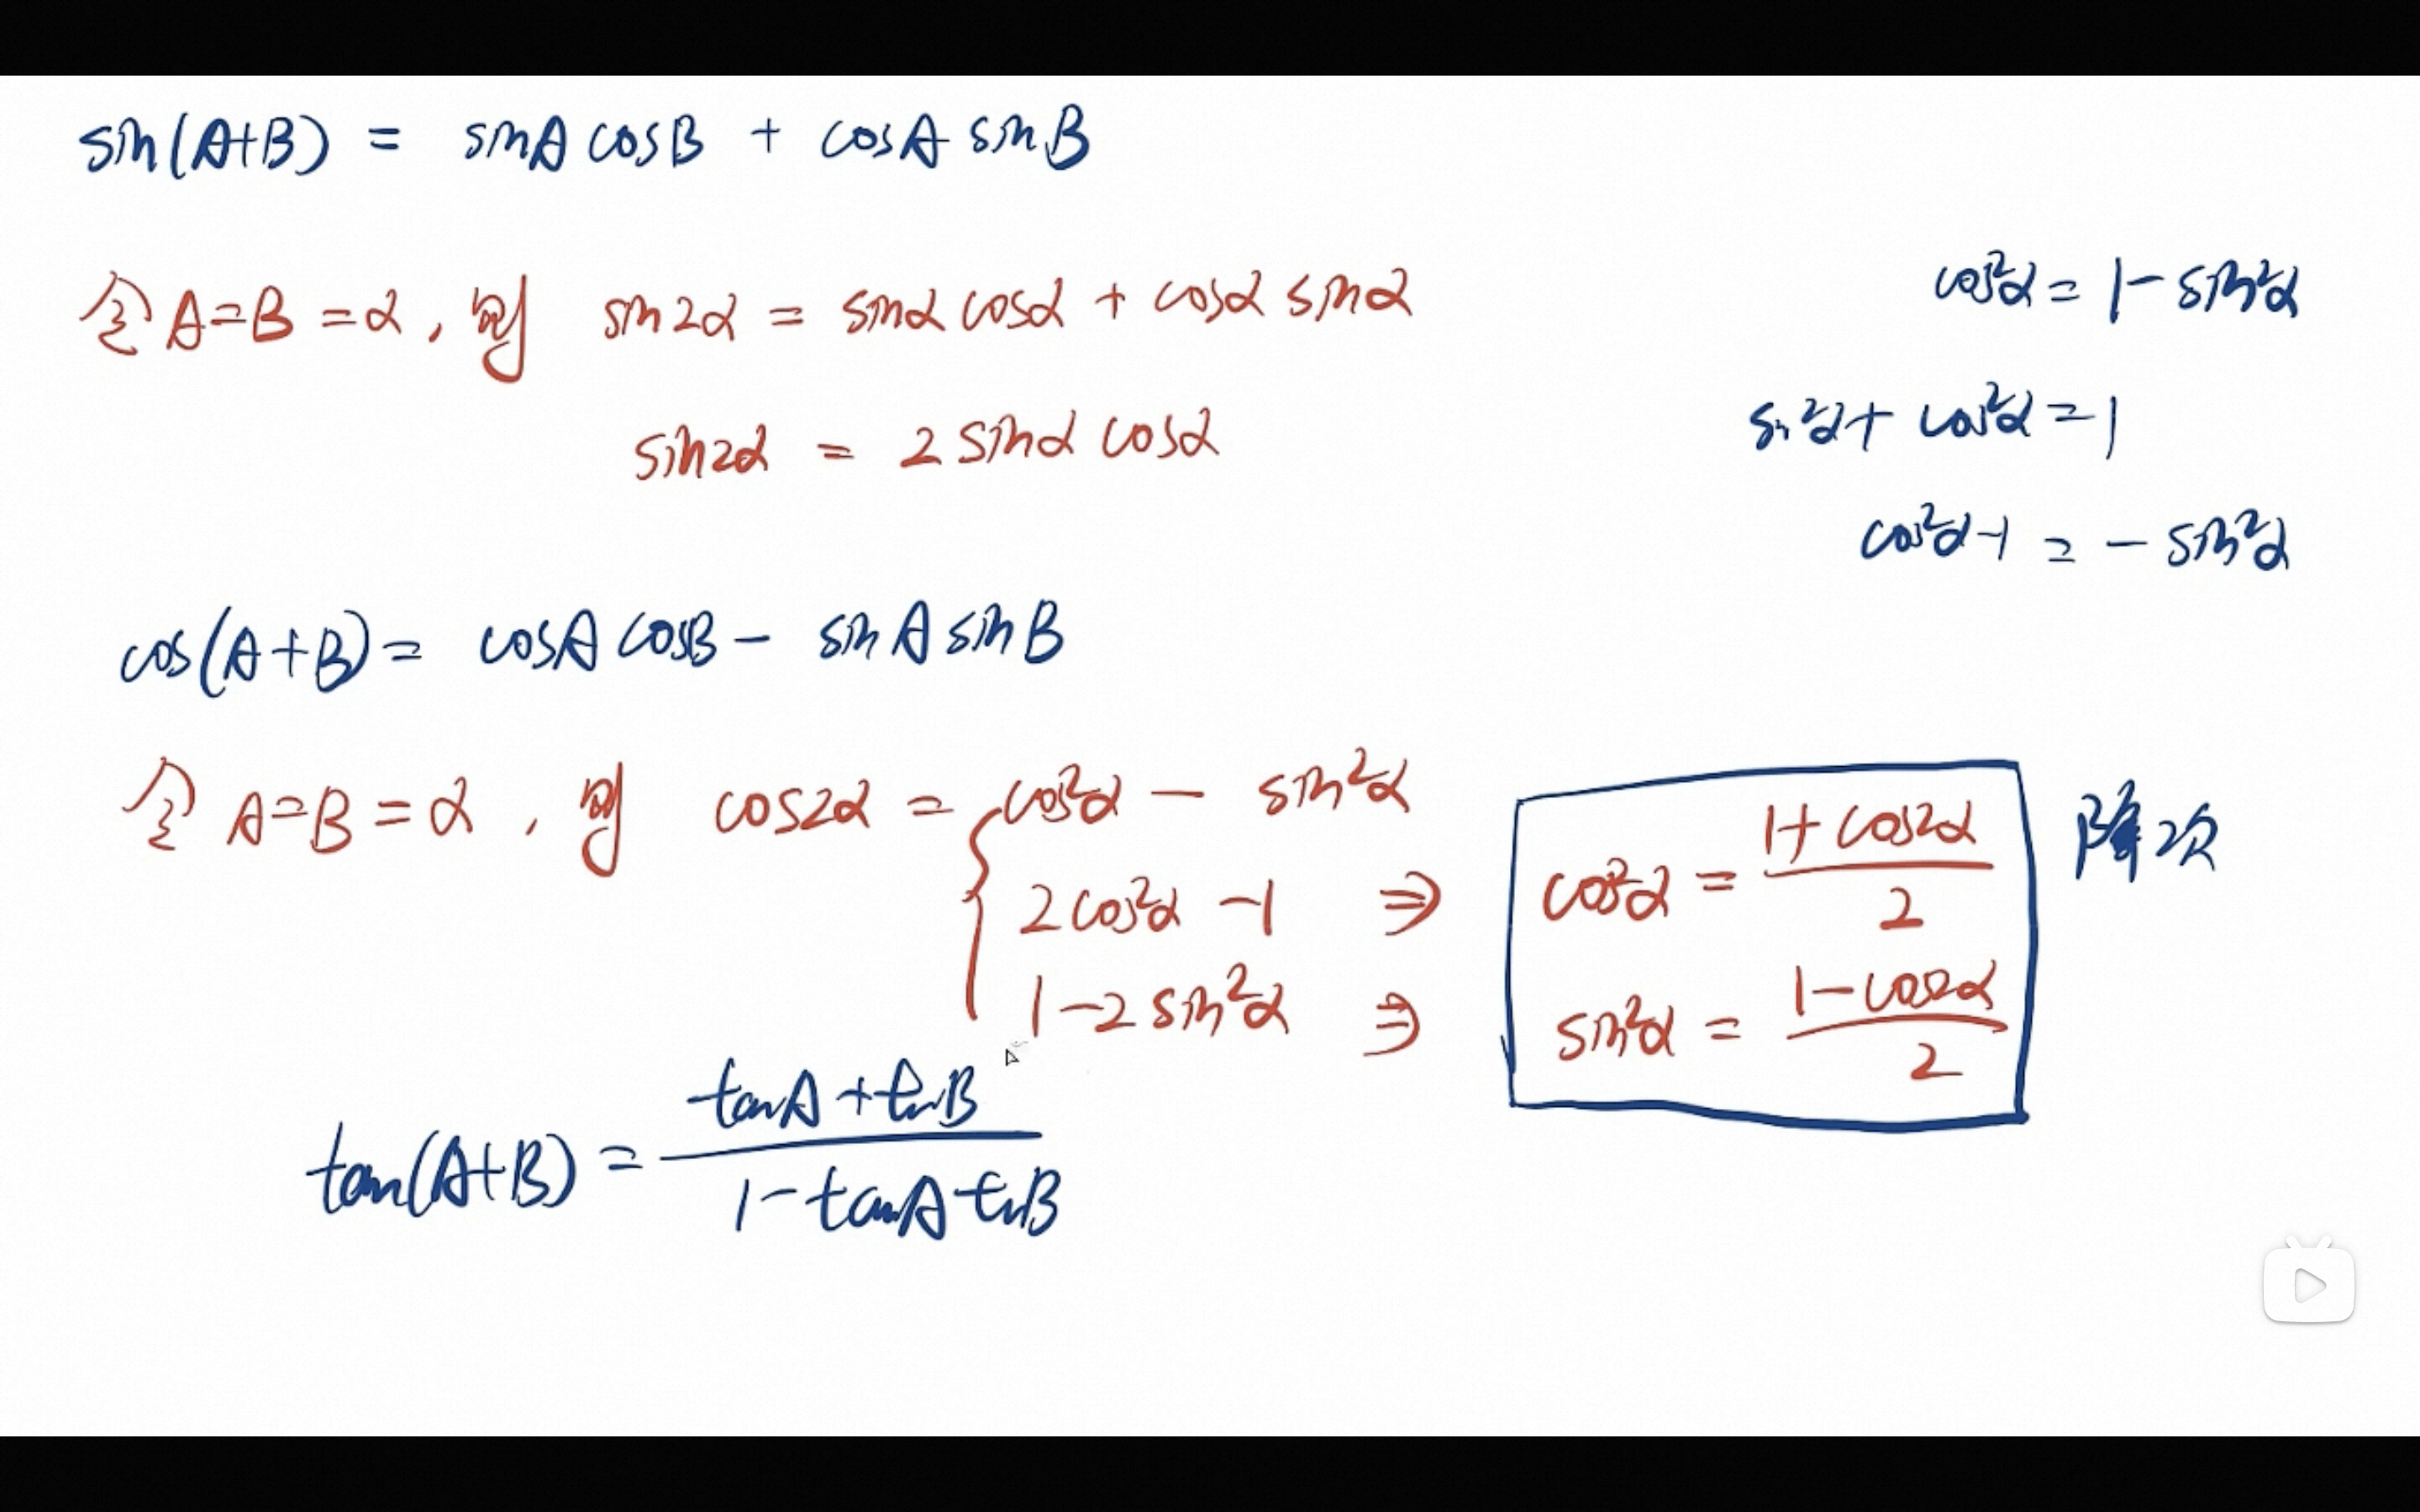 sin(A+B) = sinA cosB + cosA sinB
令A=B=α, 则 sin2α = sinα cosα + cosα sinα
sin2α = 2 sinα cosα
cos²α = 1 - sin²α
sin²α + cos²α = 1
cos²α - 1 = - sin²α
cos(A+B) = cosA cosB - sinA sinB
令 A=B=α, 则 cos2α = { cos²α - sin²α
2cos²α - 1 ⇒ cos²α = (1+cos2α)/2 降次
1 - 2 sin²α ⇒ sin²α = (1-cos2α)/2
tan(A+B) = (tanA + tanB)/(1 - tanA tanB)